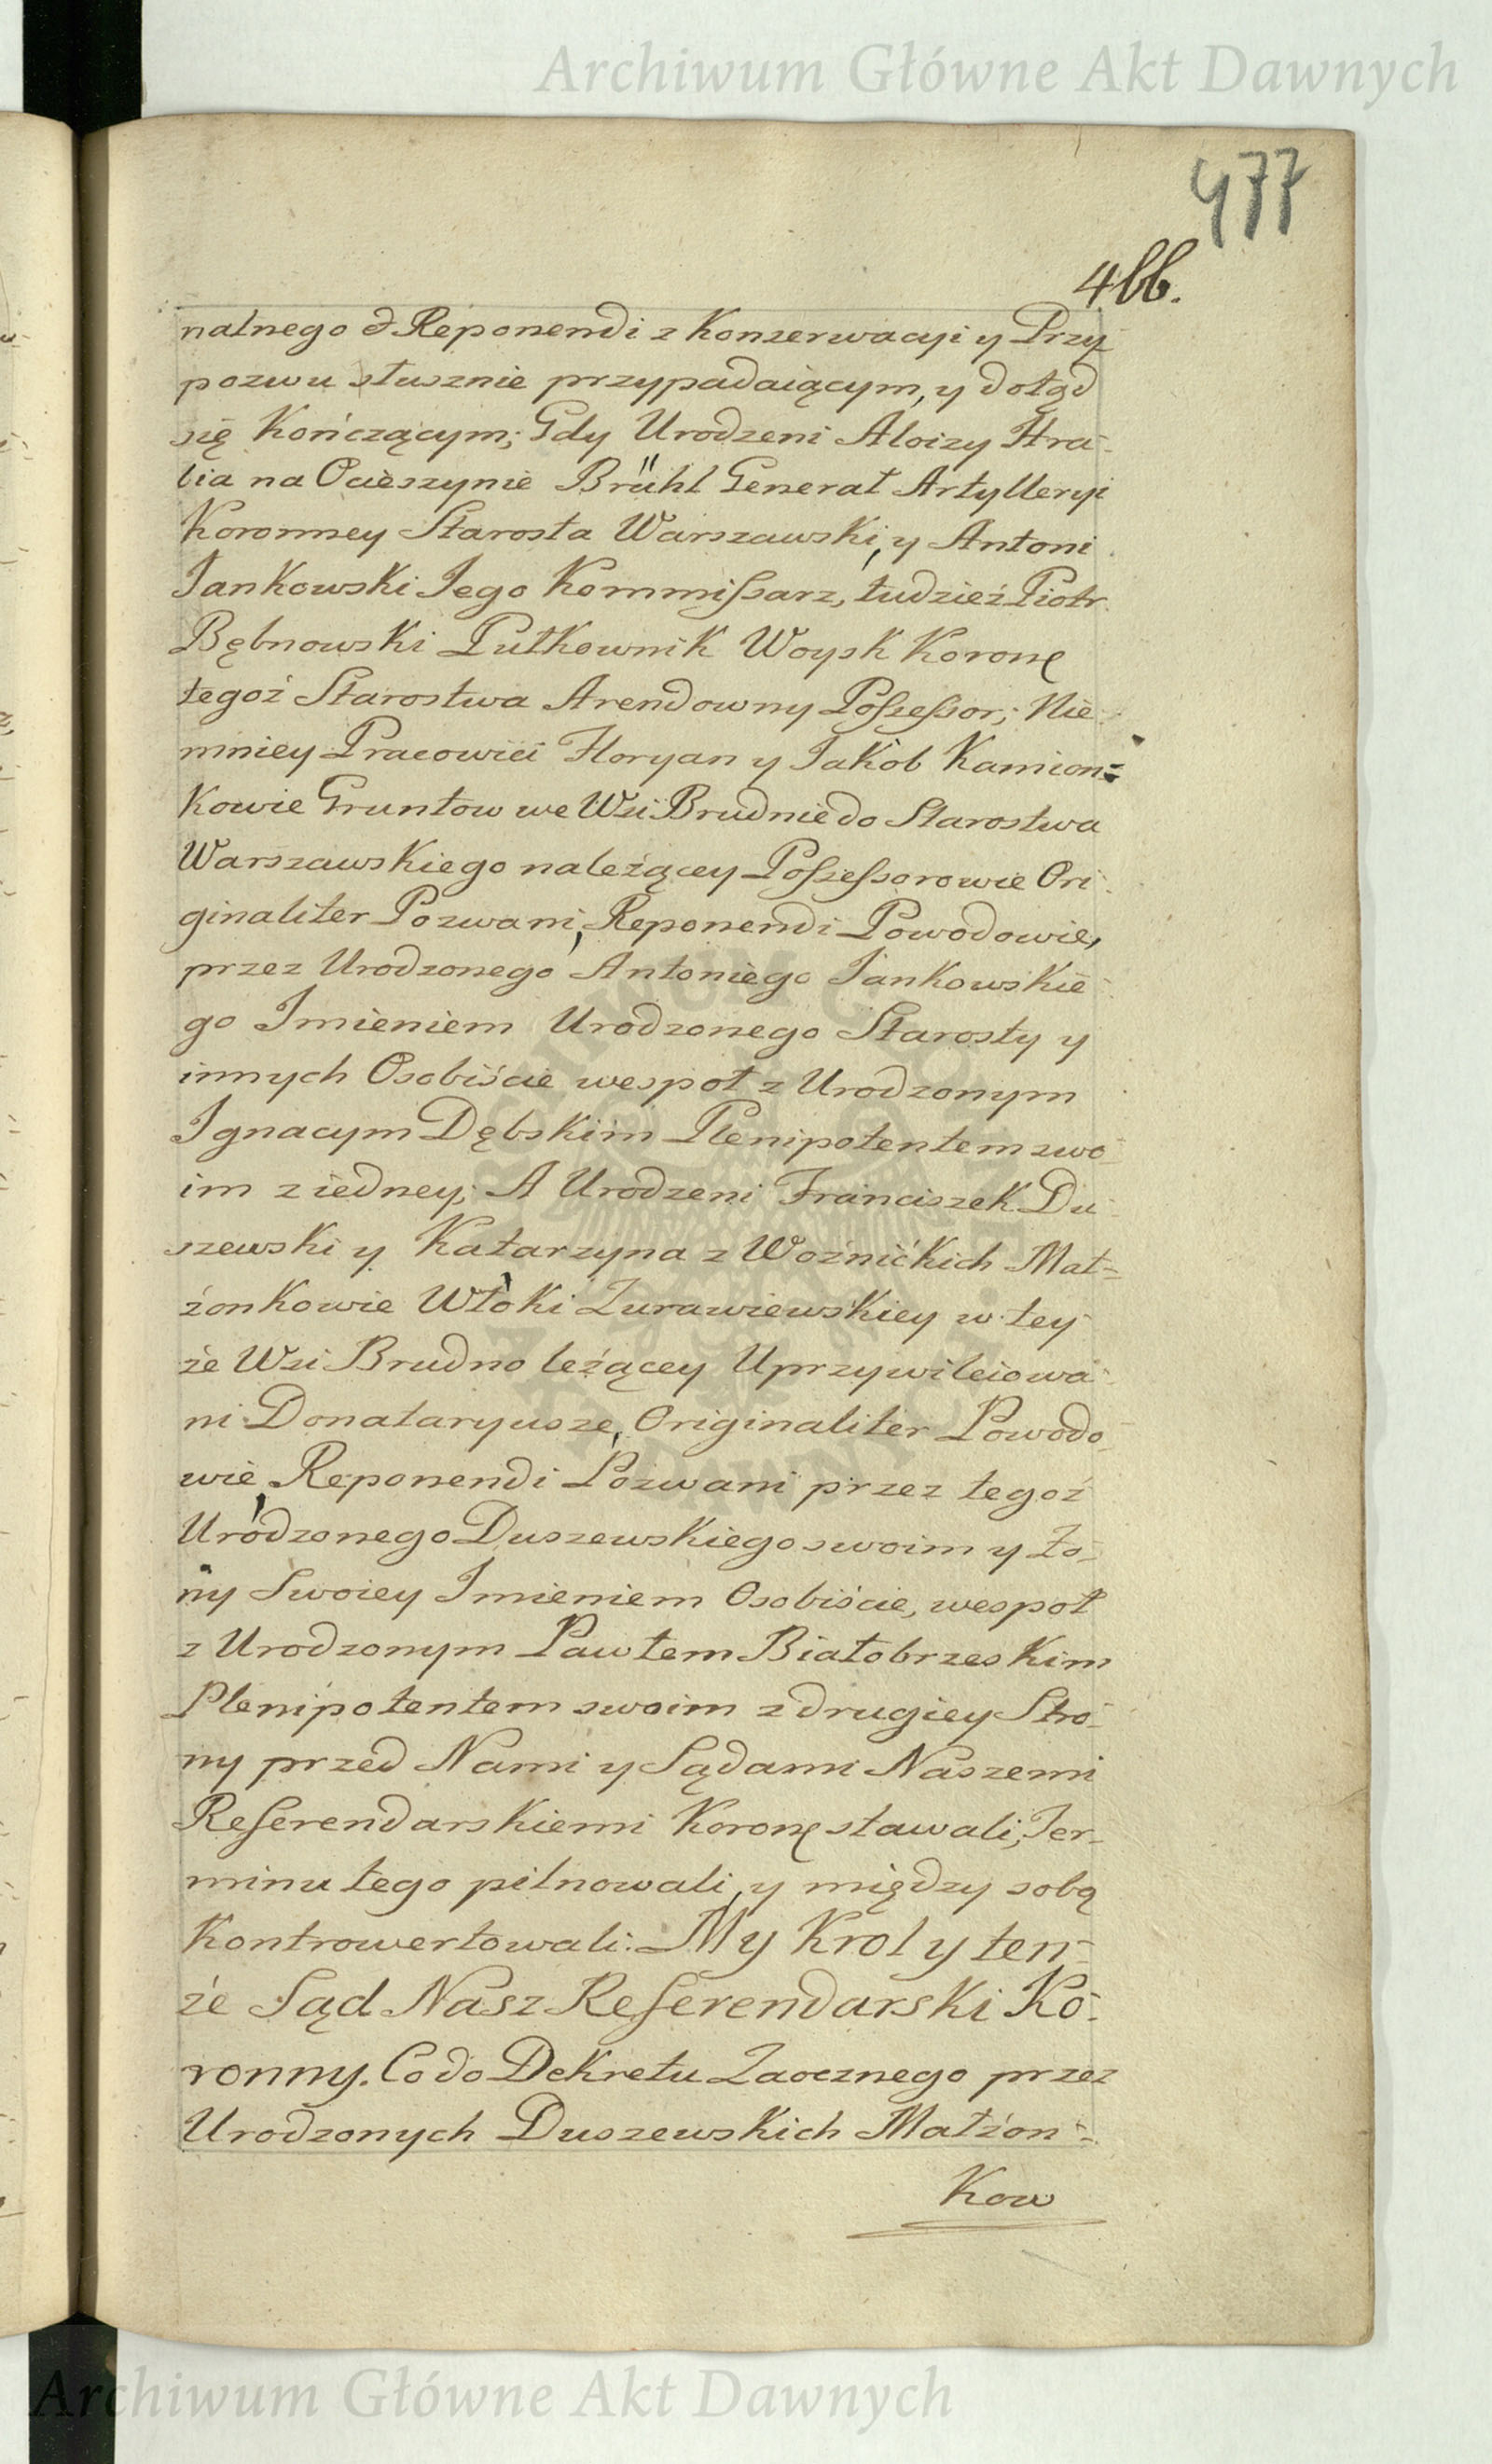 Archiwum Główne Akt Dawnych
477
466.
nalnego & Reponendi z Konserwacyi y Przy
pozwu słusznie przypadaiącym, y dotąd
się Kończącym; Gdy Urodzeni Aloizy Hra-
bia na Ocieszynie Brühl Generał Artylleryi
Koronney Starosta Warszawski, y Antoni
Jankowski Jego Kommissarz, tudzież Piotr
Bębnowski Pułkownik Woysk Koronę
tegoż Starostwa Arendowny Possessor; Nie-
mniey Pracowici Floryan y Jakób Kamion=
Kowie Gruntow we Wsi Brudnie do Starostwa
Warszawskiego należącey Possessorowie Ori-
ginaliter Pozwani, Reponendi Powodowie,
przez Urodzonego Antoniego Jankowskie-
go Imieniem Urodzonego Starosty y
innych Osobiście wespoł z Urodzonym
Ignacym Dębskim Plenipotentem swo-
im z iedney; A Urodzeni Franciszek Du-
szewski y Katarzyna z Woźnickich Mał=
żonkowie Włoki Żurawiewskiey w tey-
że Wsi Brudno leżącey Uprzywileiowa-
ni Donataryusze, Originaliter Powodo-
wie, Reponendi Pozwani przez tegoż
Urodzonego Duszewskiego swoim y Żo-
ny Swoiey Imieniem Osobiście, wespoł
z Urodzonym Pawłem Białobrzeskim
Plenipotentem swoim z drugiey Stro-
ny przed Nami y Sądami Naszemi
Referendarskiemi Koronę stawali, Ter-
minu tego pilnowali, y między sobą
Kontrowertowali. My Krol y ten-
że Sąd Nasz Referendarski Ko-
ronny. Co do Dekretu Zaocznego przez
Urodzonych Duszewskich Małżon-
Kow
Archiwum Główne Akt Dawnych